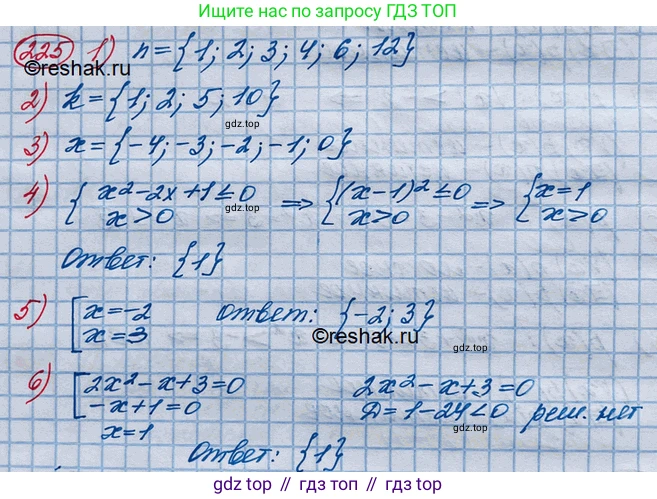 Ищите нас по запросу ГДЗ ТОП
225 1) n={1; 2; 3; 4; 6; 12}
©reshak.ru
2) k={1; 2; 5; 10}
gdz.top
3) x={-4; -3; -2; -1; 0}
4) { x²-2x+1≤0 ⇒ { (x-1)²≤0 ⇒ { x=1
x>0 x>0 x>0
gdz.top
Ответ: {1}
5) [ x=-2 Ответ: {-2; 3}
x=3
©reshak.ru
gdz.top
6) [ 2x²-x+3=0 2x²-x+3=0
-x+1=0 D=1-24<0 реш. нет
gdz.top
x=1
Ответ: {1}
gdz.top
gdz.top // гдз.топ // gdz.top